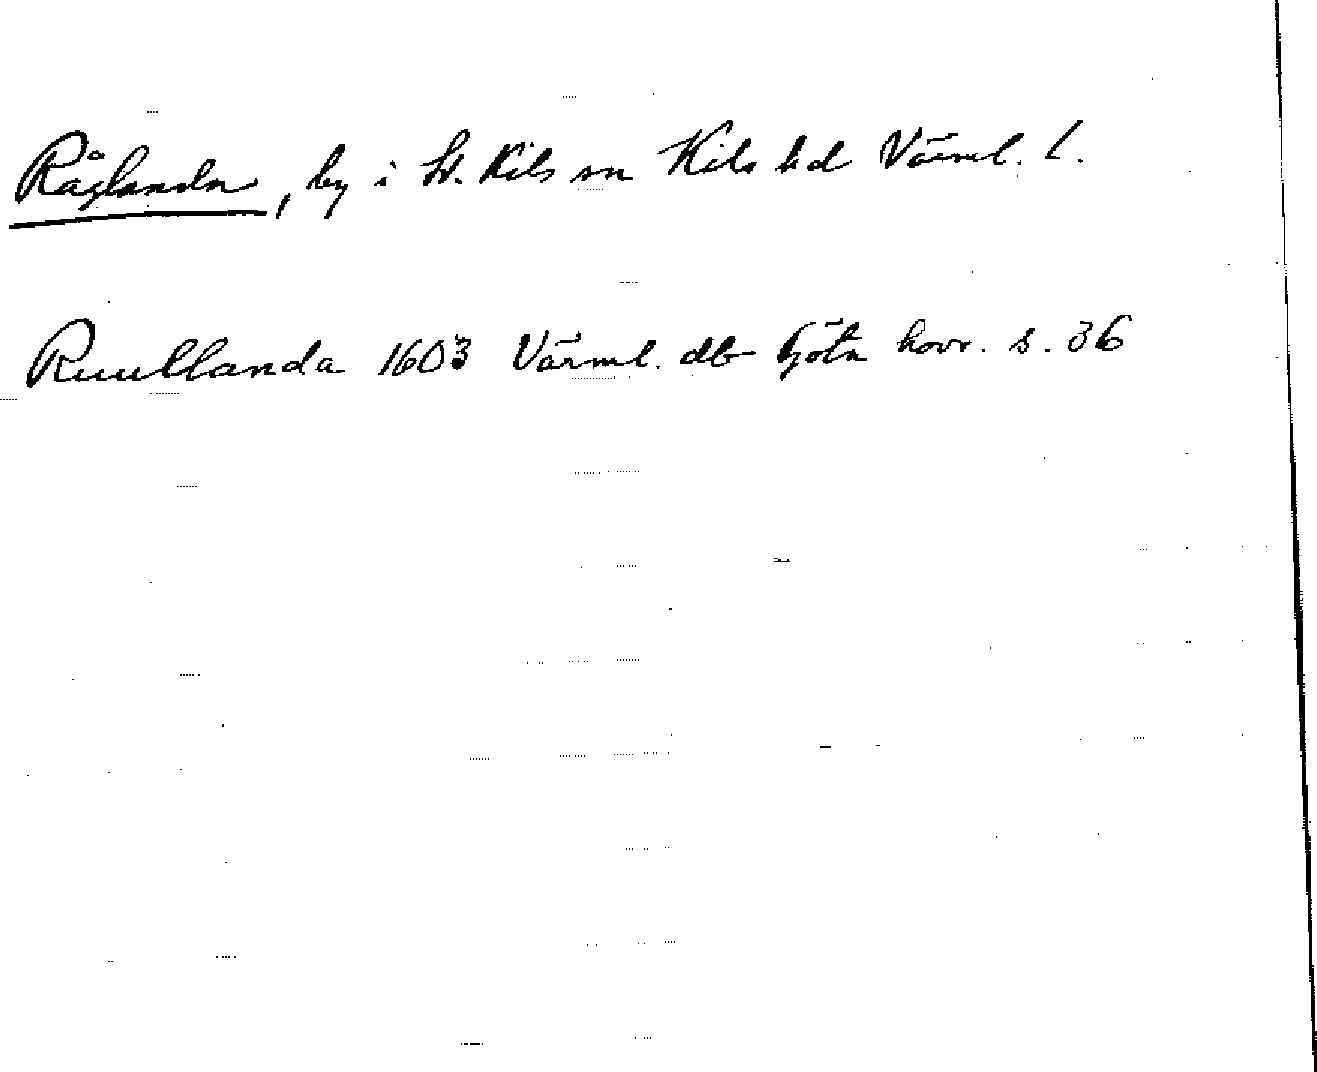 Råglanda, by i St. Kils sn Kils hd Värml. l.
Ruullanda 1603 Värml. db Göta hovr. s. 36